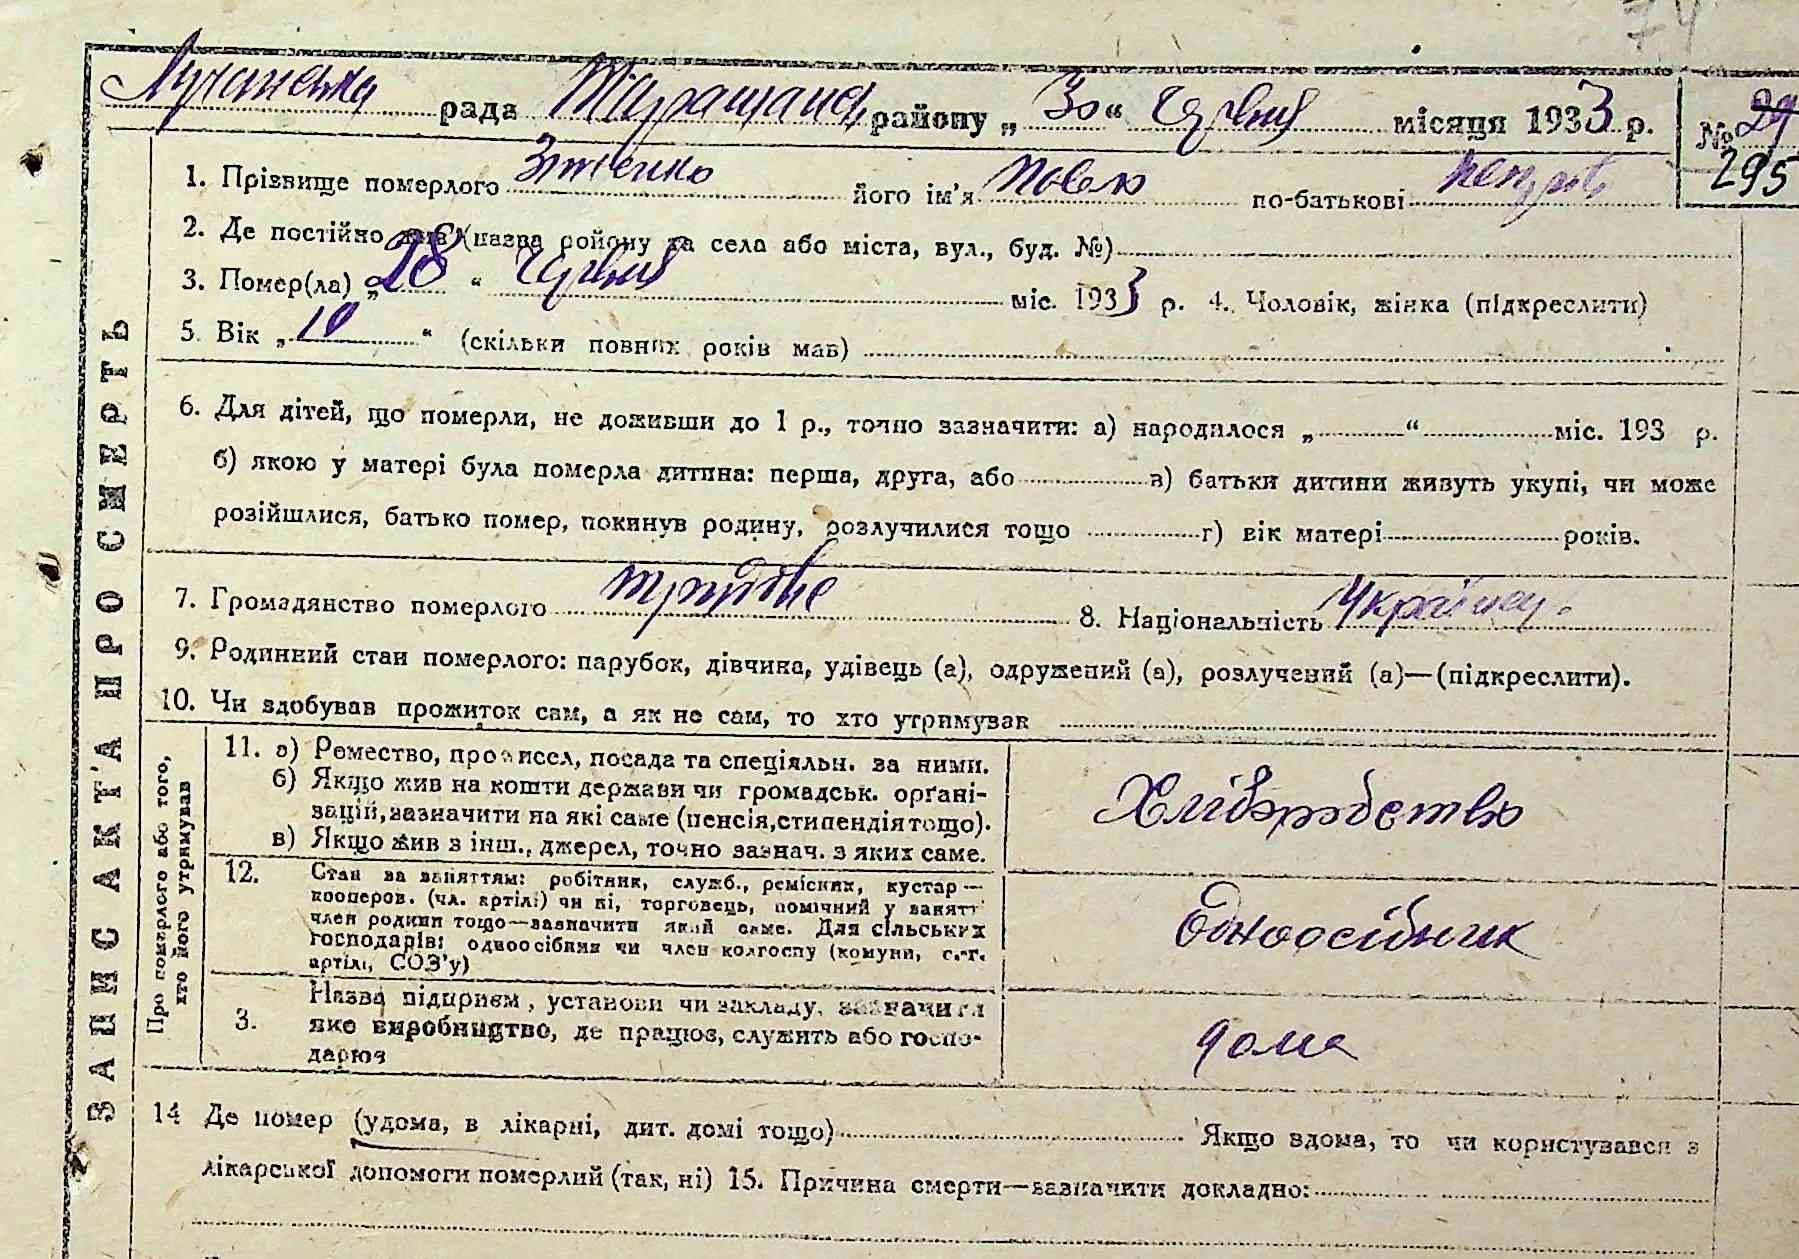 74
Лучанська рада Таращанс. району „30“ Червня місяця 1933 р. № 29
295
1. Прізвище померлого його ім'я Павло по-батькові Петров
2. Де постійно жив (назва району та села або міста, вул., буд. №)
3. Помер(ла) „28“ Червня міс. 1933 р. 4. Чоловік, жінка (підкреслити)
5. Вік „10“ (скільки повних років мав)
6. Для дітей, що померли, не доживши до 1 р., точно зазначити: а) народилося „ “ міс. 193 р.
б) якою у матері була померла дитина: перша, друга, або в) батьки дитини живуть укупі, чи може
розійшлися, батько помер, покинув родину, розлучилися тощо г) вік матері років.
7. Громадянство померлого трудове 8. Національність Українец.
9. Родинний стан померлого: парубок, дівчина, удівець (а), одружений (а), розлучений (а)—(підкреслити).
10. Чи здобував прожиток сам, а як не сам, то хто утримував
ЗАПИС АКТА ПРО СМЕРТЬ
Про померлого або того,
хто його утримував
11. а) Ремество, промисел, посада та спеціяльн. за ними.
б) Якщо жив на кошти держави чи громадськ. орґані-
зацій, зазначити на які саме (пенсія, стипендія тощо).
в) Якщо жив з інш., джерел, точно зазнач. з яких саме.
Хліборобство
12. Стан за заняттям: робітник, служб., ремісник, кустар—
кооперов. (чл. артілі) чи ні, торговець, помічний у занятт
член родини тощо—зазначити який саме. Для сільських
господарів: одноосібник чи член колгоспу (комуни, с.-г.
артілі, СОЗ'у)
Одноосібник
3. Назва підприєм, установи чи закладу, зазначити
яке виробництво, де працює, служить або госпо-
дарює
дома
14 Де помер (удома, в лікарні, дит. домі тощо) Якщо вдома, то чи користувався з
лікарської допомоги померлий (так, ні) 15. Причина смерти—зазначити докладно: